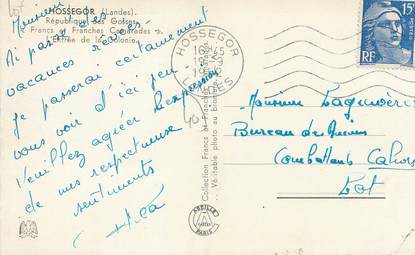 HOSSEGOR (Landes).
République des Gosses.
Francs et Franches Camarades
L'Entrée de la Colonie.
Monsieur
Ai passé des
vacances rêvées.
Je passerai certainement
vous voir d'ici peu.
Veuillez agréer l'expression
de mes respectueux
sentiments
HOSSEGOR
LANDES
15F
RF
Collection Francs et Franches Camarades
Véritable photo au bromure
ABEILLE
PARIS
Monsieur
Bureau des
Combattants Cahors
Lot